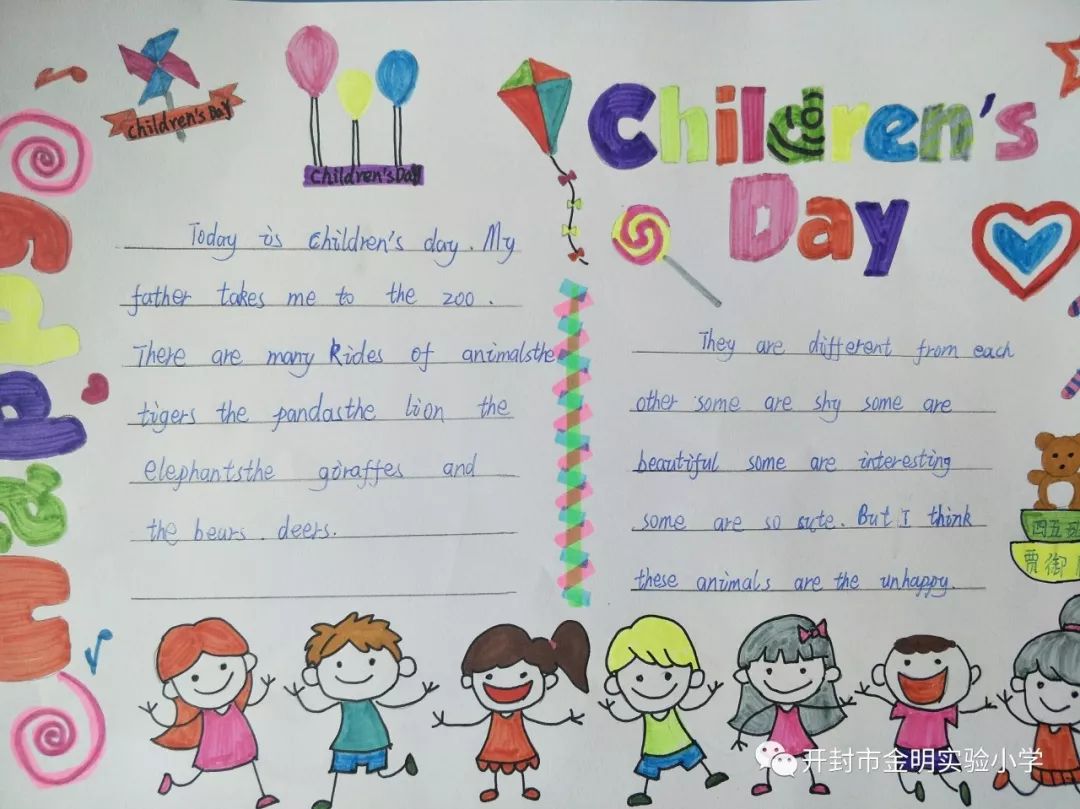 Children's Day
Children's Day
Children's
Day
Happy
Today is children's day. My
father takes me to the zoo.
There are many Kides of animalsthe
tigers the pandasthe lion the
elephantsthe giraffes and
the bears. deers.
They are different from each
other some are shy some are
beautiful some are interesting
some are so cute. But I think
these animals are the unhappy.
四五班
贾御
开封市金明实验小学